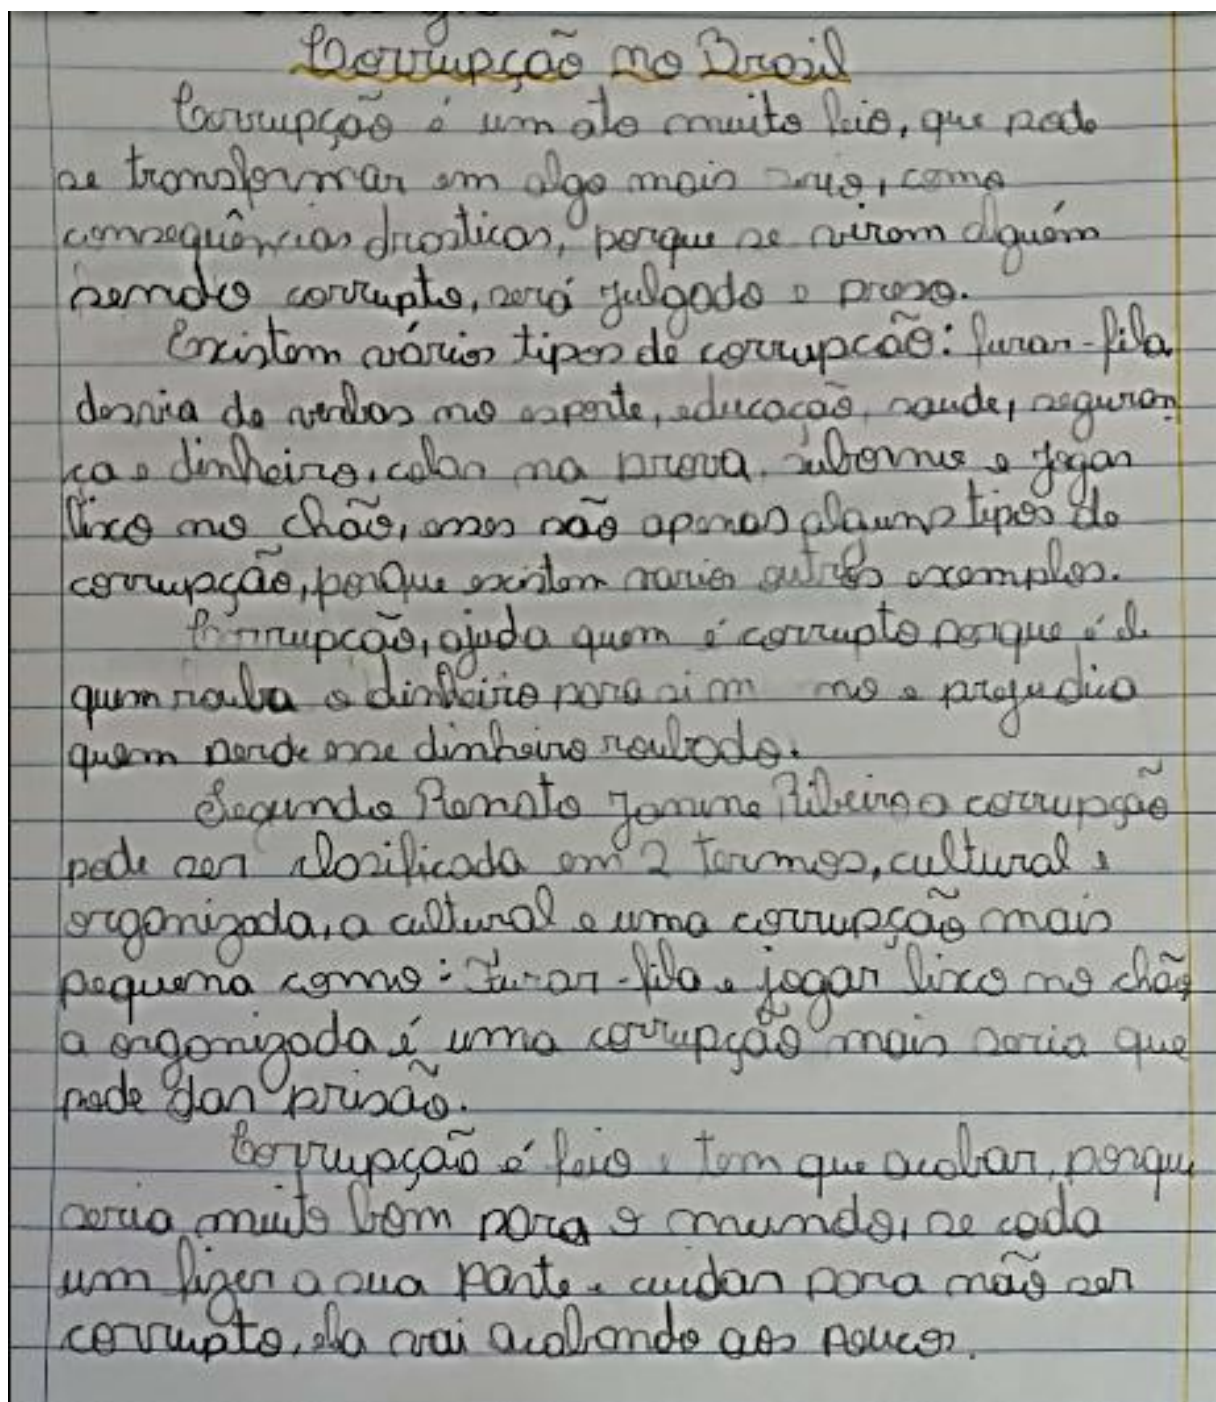 Corrupção no Brasil
Corrupção é um ato muito feio, que pode
se transformar em algo mais serio, como
consequências drasticas, porque se virem alguém
sendo corrupto, será julgado e preso.
Existem vários tipos de corrupcão: furar-fila
desvia de verbas no esporte, educacão, saude, seguran
ça e dinheiro, colar na prova, suborno e jogar
lixo no chão, esses são apenas alguns tipos de
corrupção, porque existem varios outros exemplos.
Corrupcão, ajuda quem é corrupto porque é ele
quem rouba o dinheiro para si m mo e prejudica
quem perde esse dinheiro roubado.
Segundo Renato Janine Ribeiro a corrupção
pode ser clasificada em 2 termos, cultural e
organizada, a cultural e uma corrupção mais
pequena como: Furar-fila e jogar lixo no chão
a organizada é uma corrupção mais seria que
pode dar prisão.
Corrupção é feio e tem que acabar, porque
seria muito bom para o mundo, se cada
um fizer a sua parte e cuidar para não ser
corrupto, ela vai acabando aos poucos.